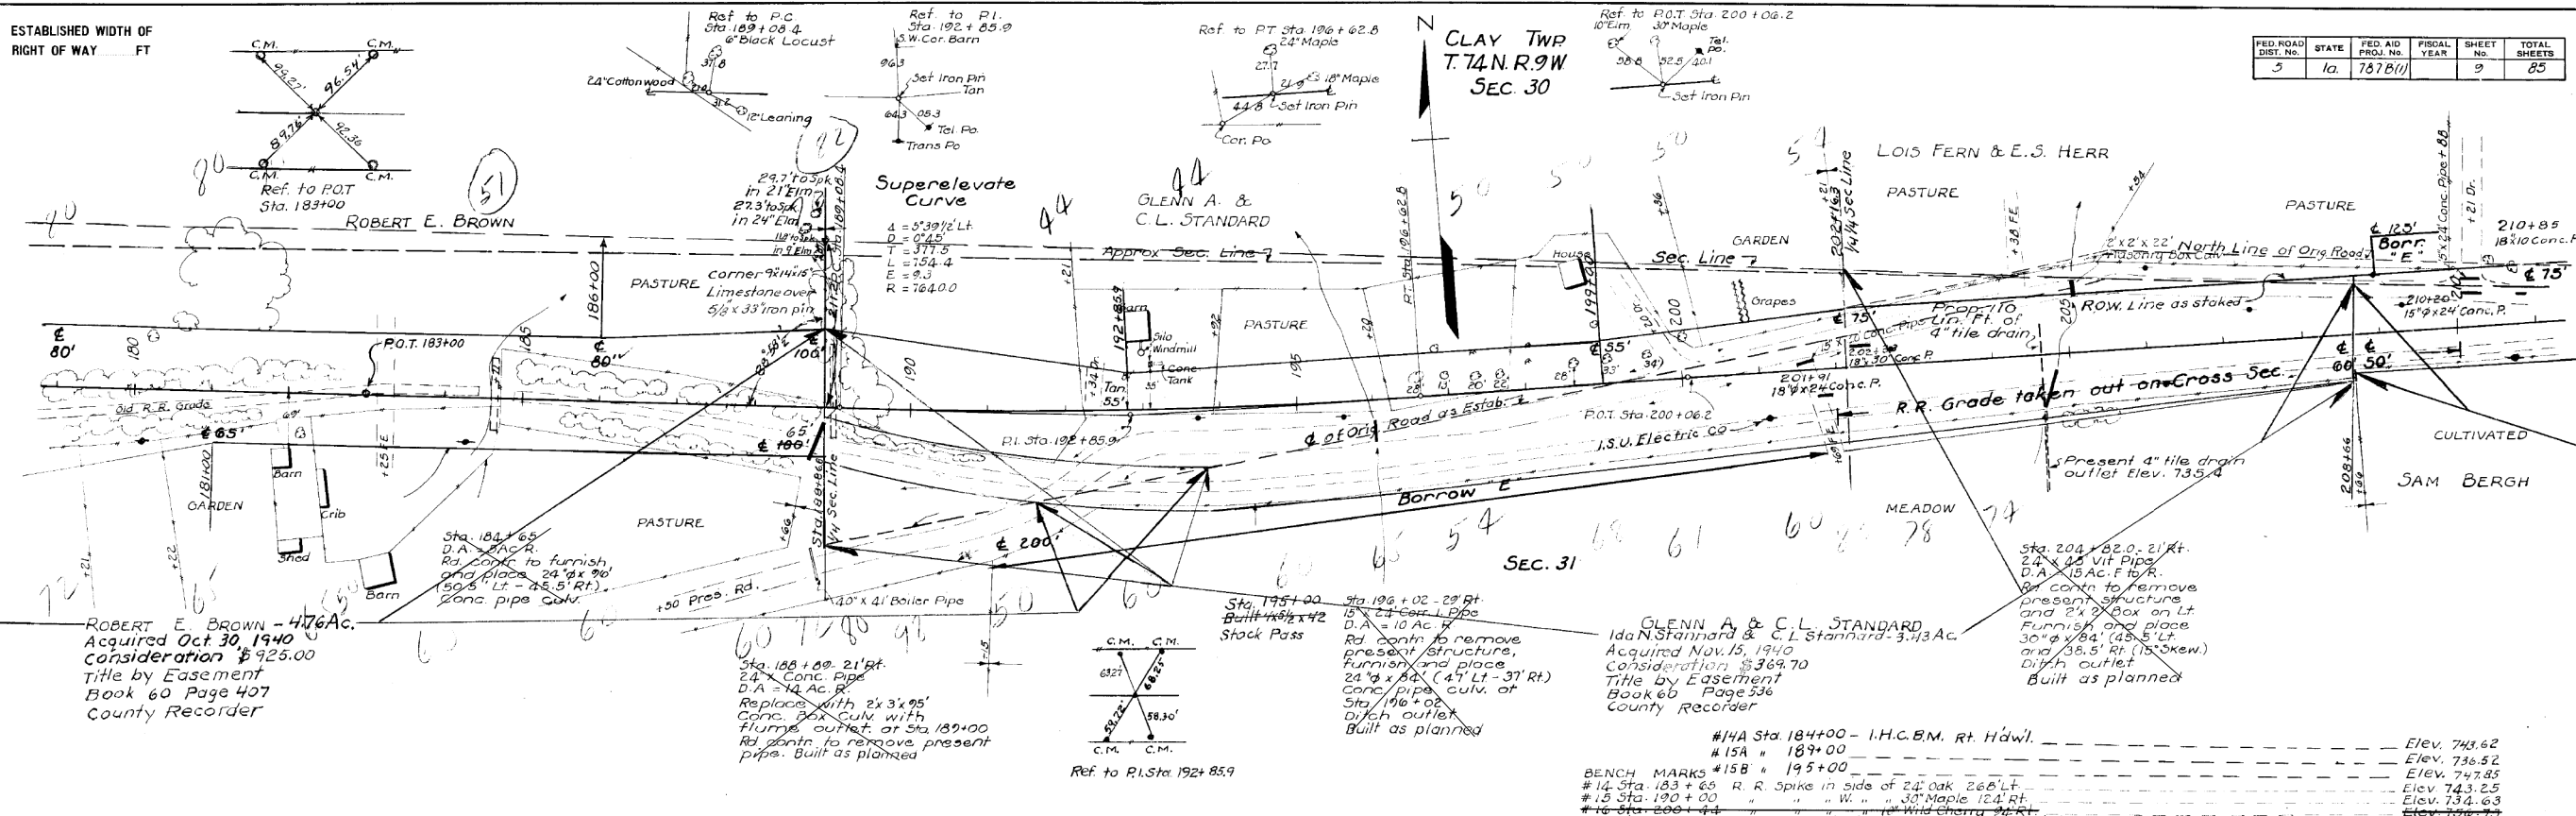 ESTABLISHED WIDTH OF
RIGHT OF WAY FT
C.M. C.M.
99.27' 96.54'
89.76' 92.36
C.M. C.M.
Ref. to P.O.T
Sta. 183+00
Ref to P.C.
Sta. 189+08.4
6" Black Locust
37.8
24" Cottonwood
12" Leaning
Ref. to P.I.
Sta. 192+85.9
S.W. Cor. Barn
96.3
Set Iron Pin
Tan
64.3
Tel. Po.
Trans Po
Ref. to P.T. Sta 196+62.8
24" Maple
27.7
21.9 18" Maple
44.8 Set Iron Pin
Cor. Po
N
CLAY TWP.
T. 74 N. R. 9 W
SEC. 30
Ref. to P.O.T. Sta. 200+06.2
10" Elm 30" Maple
Tel.
Po.
58.8 52.5 40.1
Set Iron Pin
FED. ROAD DIST. No. STATE FED. AID PROJ. No. FISCAL YEAR SHEET No. TOTAL SHEETS
5 Ia. 787B(1) 9 85
51
182
44
44
50
50
50
54
ROBERT E. BROWN
29.7' to Spk
in 21" Elm
27.3' to Spk
in 24" Elm
in 9" Elm
Superelevate
Curve
Δ = 5°39½' Lt.
D = 0°45'
T = 377.5
L = 754.4
E = 9.3
R = 7640.0
GLENN A. &
C.L. STANDARD
Approx Sec. Line
LOIS FERN & E.S. HERR
PASTURE
PASTURE
GARDEN
Sec. Line
House
Grapes
202+16.3
¼ ¼ Sec Line
+21
+36
+38 FE
+54
2'x2'x22'
Masonry Box Culv.
North Line of Orig Road
℄ 125'
Borr.
"E"
15"x24' Conc. Pipe +88
+21 Dr.
210+85
18x10 Conc. P.
℄ 75'
PASTURE
186+00
Corner 9x14x15"
Limestone over
5/8 x 33" iron pin
+21
192+85.9
Barn
Silo
Windmill
Conc
Tank
+92
PASTURE
195
+20
P.T. Sta 196+62.8
199+00
200
℄ 75'
Prop.
Lin. Ft. of
4" tile drain
205
R.O.W. Line as staked
210+20
15"φx24' Conc. P.
℄ 80'
180
P.O.T. 183+00
185
℄ 80'
℄ 100'
190
+34 Dr.
Tan.
55'
℄ 55'
201+91
18"φx24' Conc. P.
18"x30' Conc P.
℄ ℄
60' 50'
Old R.R. Grade
℄ 65'
65'
℄ 100'
P.I. Sta. 192+85.9
℄ of Orig. Road as Estab.
P.O.T. Sta. 200+06.2
I.S.U. Electric Co
R.R. Grade taken out on Cross Sec.
CULTIVATED
SAM BERGH
208+66
+66
181+00
GARDEN
Barn
Crib
Shed
Barn
+25 FE
+21
+22
PASTURE
+66
Sta. 188+86.8
¼ Sec. Line
℄ 200'
Borrow "E"
+69 FE
Present 4" tile drain
outlet Elev. 735.4
MEADOW
SEC. 31
+50 Pres. Rd.
40" x 41' Boiler Pipe
+15
Sta. 184+65
D.A. = 8 Ac R.
Rd. contr. to furnish
and place 24"φ x 96'
(50.5' Lt - 45.5' Rt.)
Conc. pipe Culv.
ROBERT E. BROWN - 4.76 Ac.
Acquired Oct. 30, 1940
Consideration $925.00
Title by Easement
Book 60 Page 407
County Recorder
Sta. 188+89 - 21' Rt.
24" x Conc. Pipe
D.A. = 14 Ac. R.
Replace with 2'x3'x95'
Conc. Box Culv. with
flume outlet at Sta. 189+00
Rd contr. to remove present
pipe. Built as planned
C.M. C.M.
63.27 68.25'
59.72' 58.30'
C.M. C.M.
Ref. to P.I. Sta. 192+85.9
Sta. 195+00
Built 4x5½x42
Stock Pass
Sta. 196+02 - 29' Rt.
15" x 24' Corr. I. Pipe
D.A. = 10 Ac. R
Rd. contr. to remove
present structure,
furnish and place
24"φ x 84' (47' Lt - 37' Rt)
Conc. pipe culv. at
Sta. 196+02
Ditch outlet
Built as planned
GLENN A. & C.L. STANDARD
Ida N. Stannard & C.L. Stannard - 3.43 Ac.
Acquired Nov. 15, 1940
Consideration $369.70
Title by Easement
Book 60 Page 536
County Recorder
Sta. 204+82.0 - 21' Rt.
24" x 45' Vit Pipe
D.A. = 15 Ac. F to R.
Rd contr to remove
present structure
and 2'x2' Box on Lt.
Furnish and place
30"φ x 84' (45.5' Lt.
and 38.5' Rt. (15° Skew.)
Ditch outlet
Built as planned
#14A Sta. 184+00 - I.H.C. B.M. Rt. Hdwl. Elev. 743.62
#15A " 189+00 Elev. 736.52
#15B " 195+00 Elev. 747.85
BENCH MARKS
#14 Sta. 183+65 R.R. Spike in side of 24" Oak 268' Lt. Elev. 743.25
#15 Sta. 190+00 " " " W. " " 30" Maple 124' Rt. Elev. 734.63
#16 Sta. 200+44 " " " " 10" Wild Cherry 94' Rt.